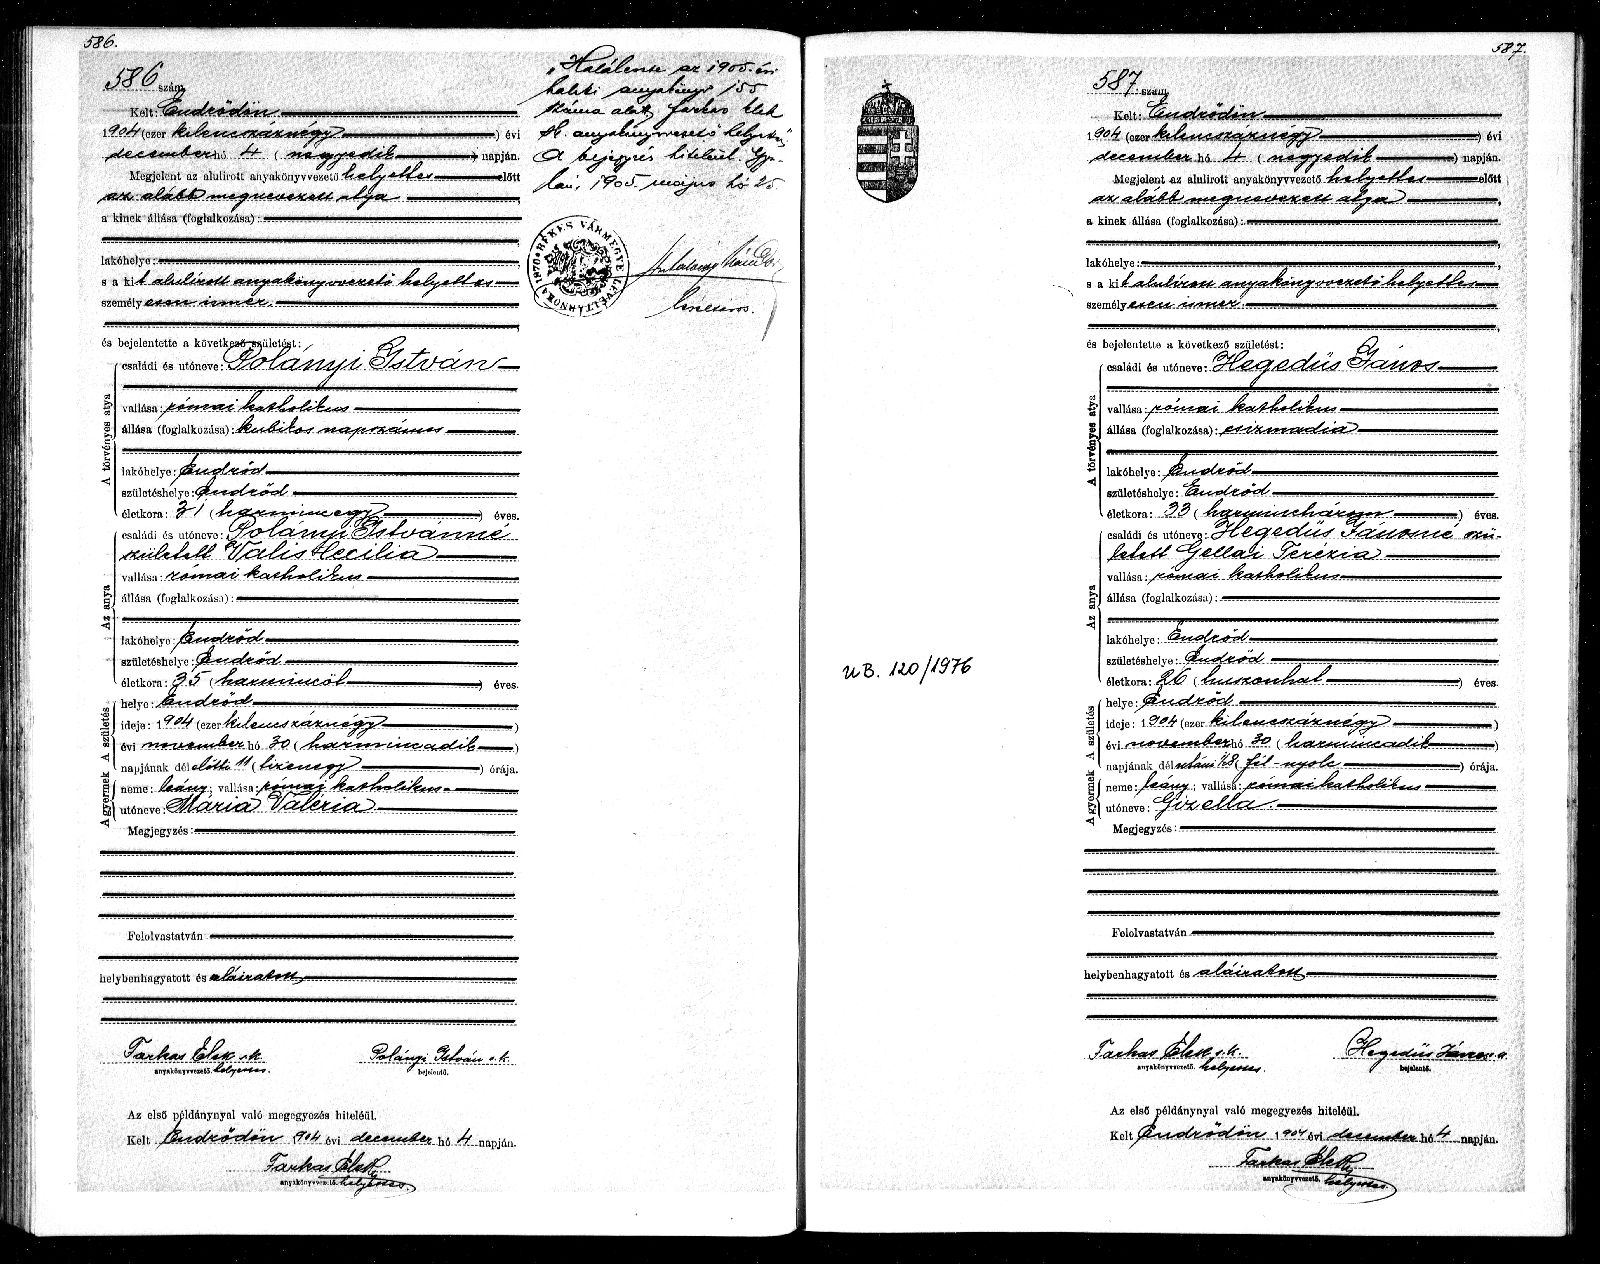 586.
586 szám
Kelt: Endrődön
1904 (ezer kilencszáznégy) évi
december hó 4 (negyedik) napján.
Megjelent az alulirott anyakönyvvezető helyettes előtt
az alább megnevezett atya
a kinek állása (foglalkozása):
lakóhelye:
s a kit alulirott anyakönyvvezető helyettes
személyesen ismer.
és bejelentette a következő születést:
A törvényes atya
családi és utóneve: Polányi István
vallása: római katholikus
állása (foglalkozása): kubikos napszámos
lakóhelye: Endrőd
születéshelye: Endrőd
életkora: 31 (harminczegy) éves.
Az anya
családi és utóneve: Polányi Istvánné
született Valis Cecilia
vallása: római katholikus
állása (foglalkozása):
lakóhelye: Endrőd
születéshelye: Endrőd
életkora: 35 (harmincöt) éves.
A születés
helye: Endrőd
ideje: 1904 (ezer kilencszáznégy)
évi november hó 30 (harmincadik)
napjának dél előtti 11 (tizenegy) órája.
A gyermek
neme: leány; vallása: római katholikus
utóneve: Mária Valéria
Megjegyzés:
Felolvastatván
helybenhagyatott és aláiratott
Farkas Elek s.k. Polányi István s.k.
anyakönyvvezető. helyettes. bejelentő.
Az első példánynyal való megegyezés hiteléül.
Kelt Endrődön 904 évi december hó 4 napján.
Farkas Elek
anyakönyvvezető. helyettes
„Halálesete az 1905. évi
halotti anyakönyv 155
száma alatt, Farkas Elek
sk. anyakönyvvezető helyettes"
A bejegyzés hiteléül. Gyu-
lán, 1905. május hó 25.
BÉKÉS VÁRMEGYE LEVÉLTÁRNOK 1870
587.
587 szám
Kelt: Endrődön
1904 (ezer kilencszáznégy) évi
december hó 4 (negyedik) napján.
Megjelent az alulirott anyakönyvvezető helyettes előtt
az alább megnevezett atya
a kinek állása (foglalkozása):
lakóhelye:
s a kit alulirott anyakönyvvezető helyettes
személyesen ismer
és bejelentette a következő születést:
A törvényes atya
családi és utóneve: Hegedüs János
vallása: római katholikus
állása (foglalkozása): csizmadia
lakóhelye: Endrőd
születéshelye: Endrőd
életkora: 33 (harminchárom) éves.
Az anya
családi és utóneve: Hegedüs Jánosné szü-
letett Gellai Terézia
vallása: római katholikus
állása (foglalkozása):
lakóhelye: Endrőd
születéshelye: Endrőd
életkora: 26 (huszonhat) éves.
A születés
helye: Endrőd
ideje: 1904 (ezer kilencszáznégy)
évi november hó 30 (harmincadik)
napjának dél utáni ½8 (fél nyolc) órája.
A gyermek
neme: leány; vallása: római katholikus
utóneve: Gizella
Megjegyzés:
Felolvastatván
helybenhagyatott és aláiratott
Farkas Elek s.k. Hegedüs János s.k.
anyakönyvvezető. helyettes. bejelentő.
Az első példánynyal való megegyezés hiteléül.
Kelt Endrődön 1904 évi december hó 4 napján.
Farkas Elek
anyakönyvvezető. helyettes
UB. 120/1976